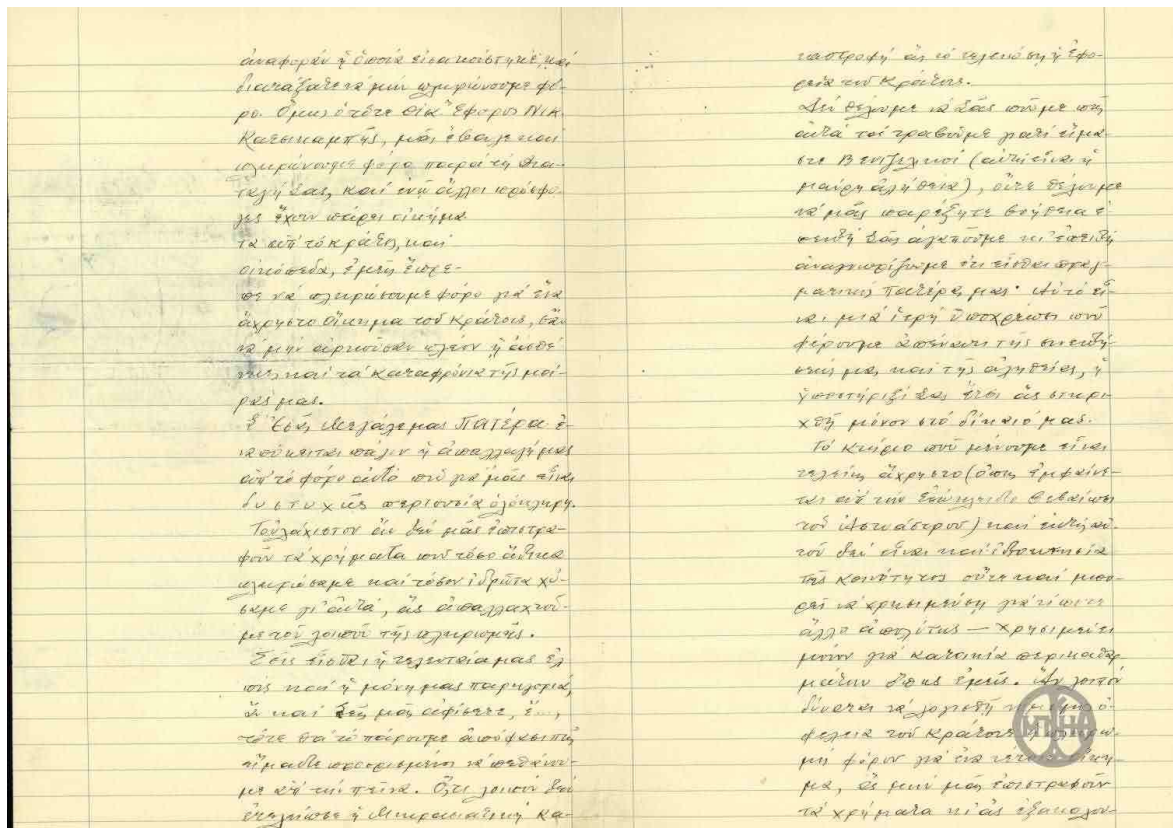 ἀναφορὰν ἡ ὁποία εἰσακούστηκε, καὶ
διατάξατε νὰ μὴν πληρώνουμε φό-
ρο. Ὅμως ὁ τότε Οἰκ. Ἔφορος Νικ.
Κατσικαμπῆς, μᾶς ἔβαλε καὶ
πληρώνουμε φόρο παρὰ τὴ δια-
ταγή Σας, καὶ ἐνῶ ἄλλοι πρόσφυ-
γες ἔχουν πάρει οἰκήμα-
τα ἀπ' τὸ κράτος, καὶ
οἰκόπεδα, ἐμεῖς ἔπρε-
πε νὰ πληρώσουμε φόρο γιὰ ἕνα
ἄχρηστο οἴκημα τοῦ Κράτους, σὰν
νὰ μὴν ἀρκοῦσαν πλέον ἡ ἀσθέ-
νειες καὶ τὰ καταφρόνια τῆς μοί-
ρας μας.
Σ' Ἐσᾶς Μεγάλε μας Πατέρα ἐ-
ναπόκειται πάλιν ἡ ἀπαλλαγή μας
ἀπ' τὸ φόρο αὐτὸ ποὺ γιὰ μᾶς εἶναι
δυστυχῶς περιουσία ὁλόκληρη.
Τοὐλάχιστον ἂν δὲν μᾶς ἐπιστρα-
φοῦν τὰ χρήματα ποὺ τόσο ἄδικα
πληρώσαμε καὶ τόσον ἱδρῶτα χύ-
σαμε γι' αὐτά, ἂς ἀπαλλαχτοῦ-
με τοῦ λοιποῦ τῆς πληρωμῆς.
Σεῖς εἶσθαι ἡ τελευταία μας ἐλ-
πὶς καὶ ἡ μόνη μας παρηγοριά,
ἂ καὶ Σεῖς μᾶς ἀφίσετε, ἔ...,
τότε θὰ τὸ πάρουμε ἀπόφασι πῶς
εἴμαστε προορισμένοι νὰ πεθάνου-
με ἀπ' τὴν πεῖνα. Ὅτι λοιπὸν δὲν
ἐτελείωσε ἡ Μικρασιατικὴ κα-
ταστροφὴ ἂς τὸ τελειώσῃ ἡ Ἐφο-
ρεία τοῦ Κράτους.
Δὲν θέλουμε νὰ Σᾶς ποῦμε πῶς
αὐτὰ τὰ τραβοῦμε γιατὶ εἴμα-
στε Βενιζελικοὶ (αὐτὴ εἶναι ἡ
μαύρη ἀλήθεια), οὔτε θέλουμε
νὰ μᾶς παρέξητε βοήθεια ἐ-
πειδὴ Σᾶς ἀγαπούμε κι' ἐπειδὴ
ἀναγνωρίζωμε ὅτι εἶσθαι πραγ-
ματικὸς Πατέρας μας. Αὐτὸ εἶ-
ναι μιὰ ἱερὴ ὑποχρέωσι ποὺ
φέρουμε ἀπέναντι τῆς συνειδή-
σεώς μας καὶ τῆς ἀληθείας, ἡ
ὑποστήριξί Σας ἔτσι ἂς στηρι-
χθῇ μόνον στὸ δίκαιό μας.
Τὸ κτίριο ποὺ μένουμε εἶναι
τελείως ἄχρηστο (ὅπως ἐμφαίνε-
ται ἀπ' τὴν βεβαίωσι
τοῦ) καὶ ἐκτὸς αὐ-
τοῦ δὲν εἶναι καὶ ἰδιοκτησία
τῆς Κοινότητος οὔτε καὶ μπο-
ρεῖ νὰ χρησιμεύσῃ γιὰ τίποτε
ἄλλο ἀπολύτως — χρησιμεύει
μόνον γιὰ κατοικία περικαθαρ-
μάτων ὅπως ἐμεῖς. Ἂν λοιπὸν
δύναται νὰ λογισθῇ ὠ-
φέλεια τοῦ Κράτους ἡ πληρω-
μὴ φόρου γιὰ ἕνα τέτοιο οἴκη-
μα, ἂς μὴν μᾶς ἐπιστραφοῦν
τὰ χρήματα κι' ἂς ἐξακολου-
ΜΠΗΑ